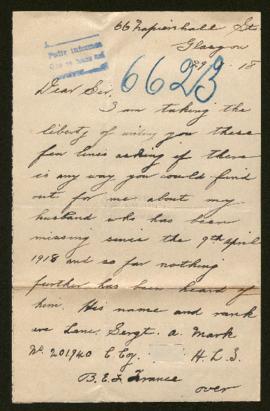 66 Napiershall St.
Glasgow
29. 18
6623
Dear Sir,
I am taking the
liberty of writing you these
few lines asking if there
is any way you could find
out for me about my
husband who has been
missing since the 9th April
1918 and so far nothing
further has been heard of
him. His name and rank
are Lance Sergt. A. Mark
No. 201940 C Coy. H. L. I.
B. E. F. France
over